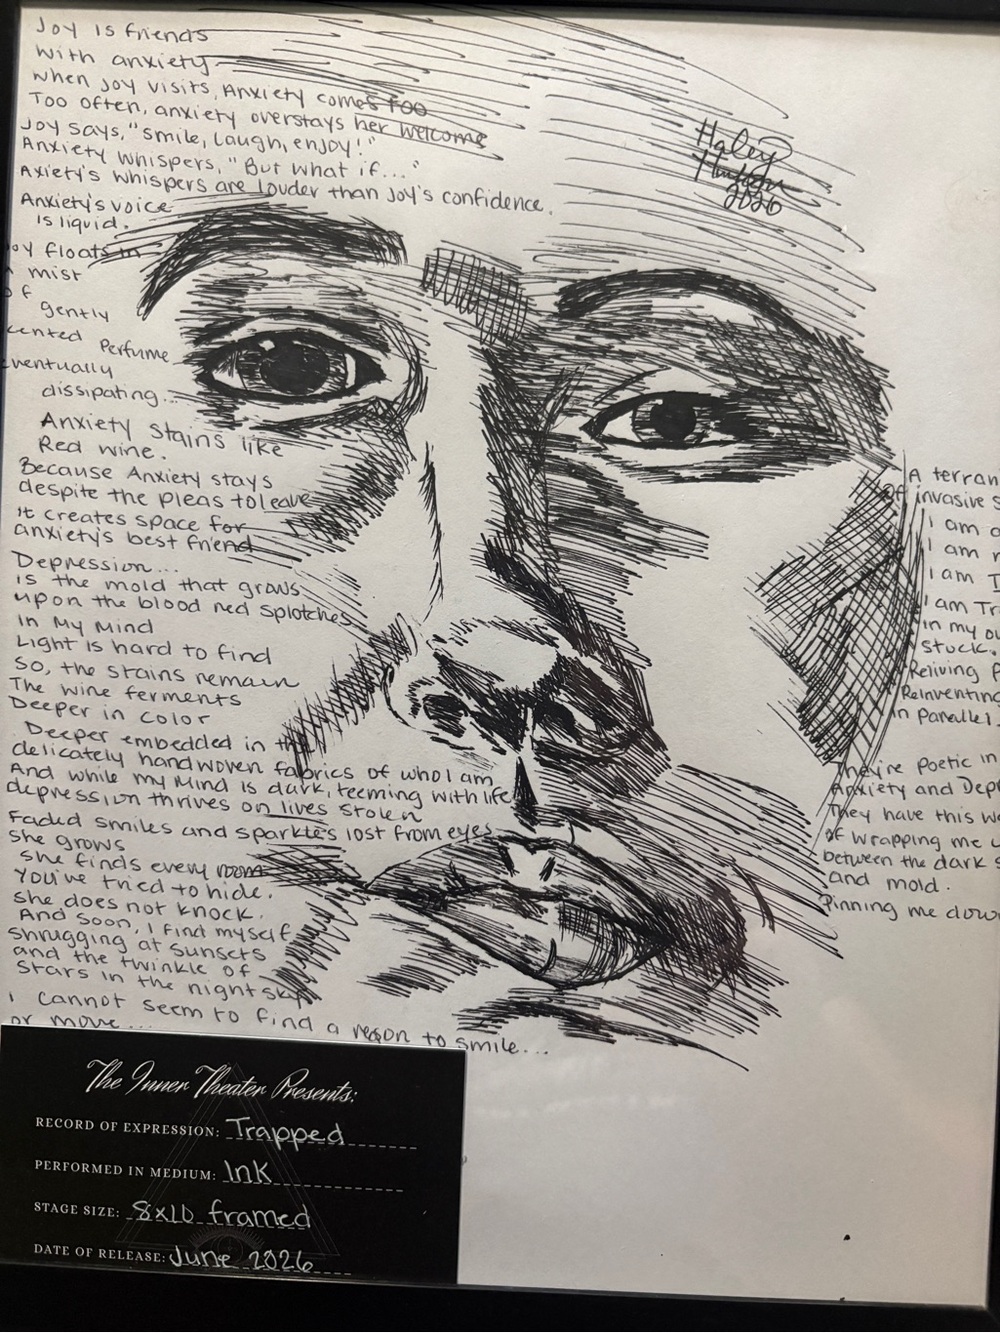 Joy is friends
with anxiety
when joy visits, Anxiety comes too
Too often, anxiety overstays her welcome
Joy says, "smile, laugh, enjoy!"
Anxiety whispers, "But what if..."
Axiety's whispers are louder than Joy's confidence.
Anxiety's voice
is liquid.
oy floats in
mist
of
gently
cented Perfume
ventually
dissipating...
Anxiety stains like
Red wine.
Because Anxiety stays
despite the pleas to leave
it creates space for
anxiety's best friend
Depression...
is the mold that grows
upon the blood red splotches
in My Mind
Light is hard to find
So, the stains remain
The wine ferments
Deeper in color
Deeper embedded in the
delicately handwoven fabrics of who I am
And while my Mind is dark, teeming with life
depression thrives on lives stolen
Faded smiles and sparkles lost from eyes
she grows
she finds every room
You've tried to hide.
she does not knock.
And soon, I find myself
shrugging at sunsets
and the twinkle of
stars in the night sky
I cannot seem to find a reason to smile...
or move...
Haley
2026
A terran
of invasive s
I am
I am
I am
I am Tr
in my ou
stuck.
Reliving
Reinventing
in Parallel
They're Poetic in
Anxiety and Dep
They have this w
of wrapping me u
between the dark s
and mold.
Pinning me down
The Inner Theater Presents:
RECORD OF EXPRESSION: Trapped
PERFORMED IN MEDIUM: Ink
STAGE SIZE: 8x10 framed
DATE OF RELEASE: June 2026